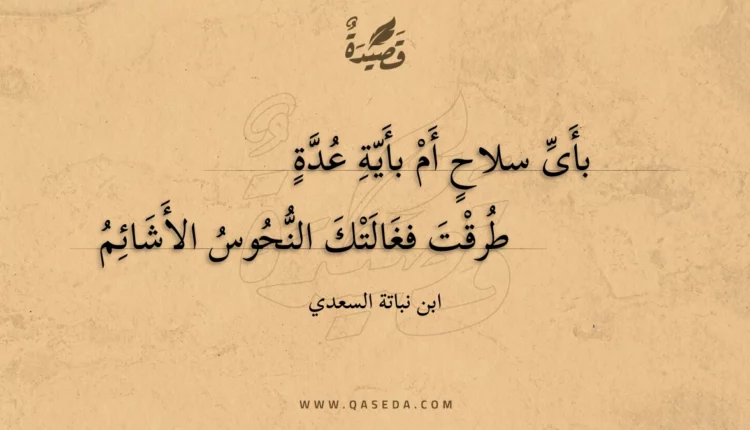 قَصِيْدَةٌ
بأَىِّ سلاحٍ أَمْ بأَيّةِ عُدَّةٍ
طُرقْتَ فغَالَتْكَ النُّحُوسُ الأَشَائِمُ
ابن نباتة السعدي
WWW.QASEDA.COM